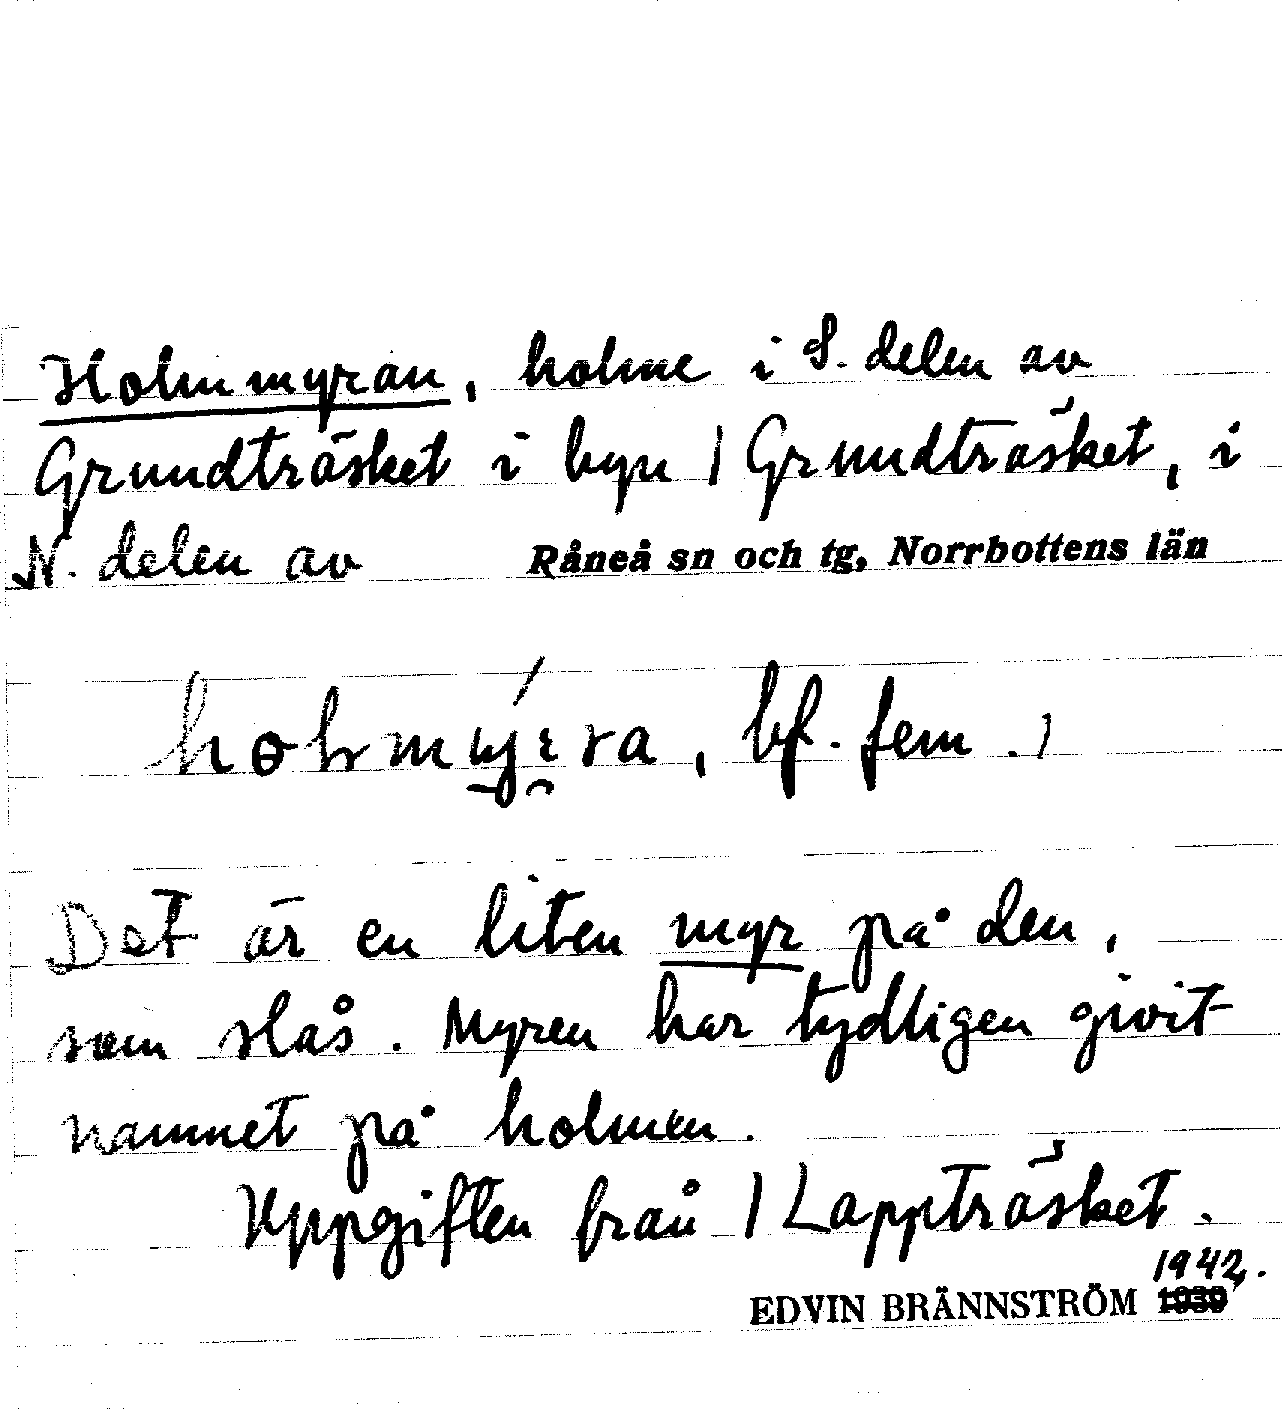 Holmmyran, holme i S. delen av
Grundträsket i byn | Grundträsket, i
N. delen av Råneå sn och tg, Norrbottens län
bf. fem.
Det är en liten myr på den,
som slås. Myren har tydligen givit
namnet på holmen.
Uppgiften från | Lappträsket.
1942.
EDVIN BRÄNNSTRÖM 1939